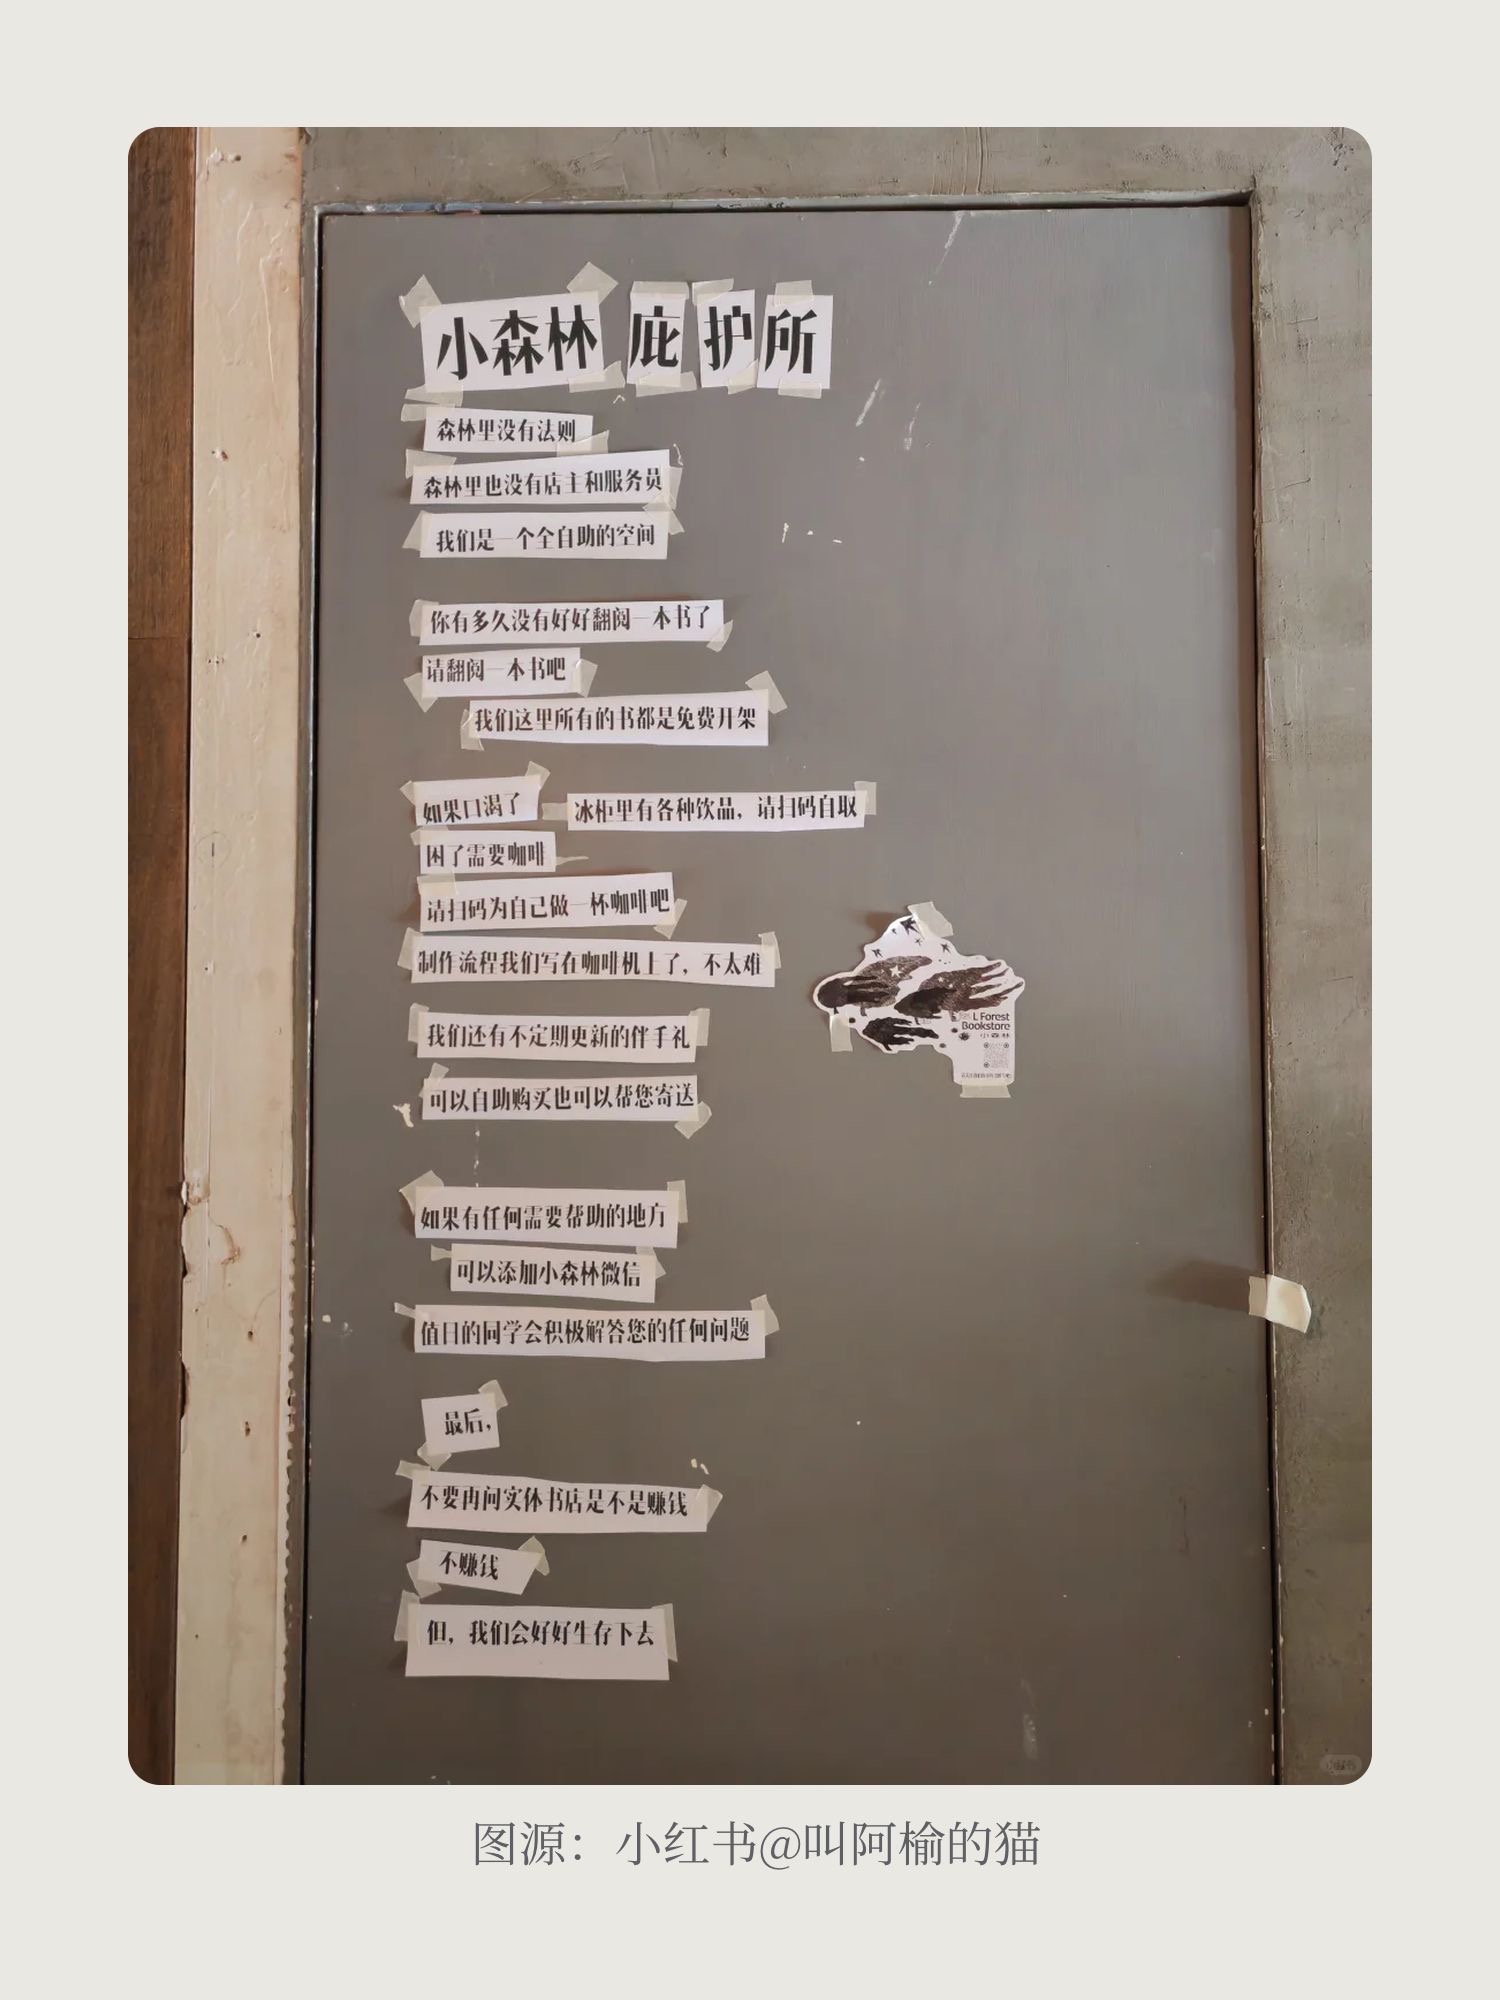 小森林 庇护所
森林里没有法则
森林里也没有店主和服务员
我们是一个全自助的空间
你有多久没有好好翻阅一本书了
请翻阅一本书吧
我们这里所有的书都是免费开架
如果口渴了 冰柜里有各种饮品，请扫码自取
困了需要咖啡
请扫码为自己做一杯咖啡吧
制作流程我们写在咖啡机上了，不太难
L Forest
Bookstore
小森林
我们还有不定期更新的伴手礼
可以自助购买也可以帮您寄送
如果有任何需要帮助的地方
可以添加小森林微信
值日的同学会积极解答您的任何问题
最后，
不要再问实体书店是不是赚钱
不赚钱
但，我们会好好生存下去
图源：小红书@叫阿榆的猫